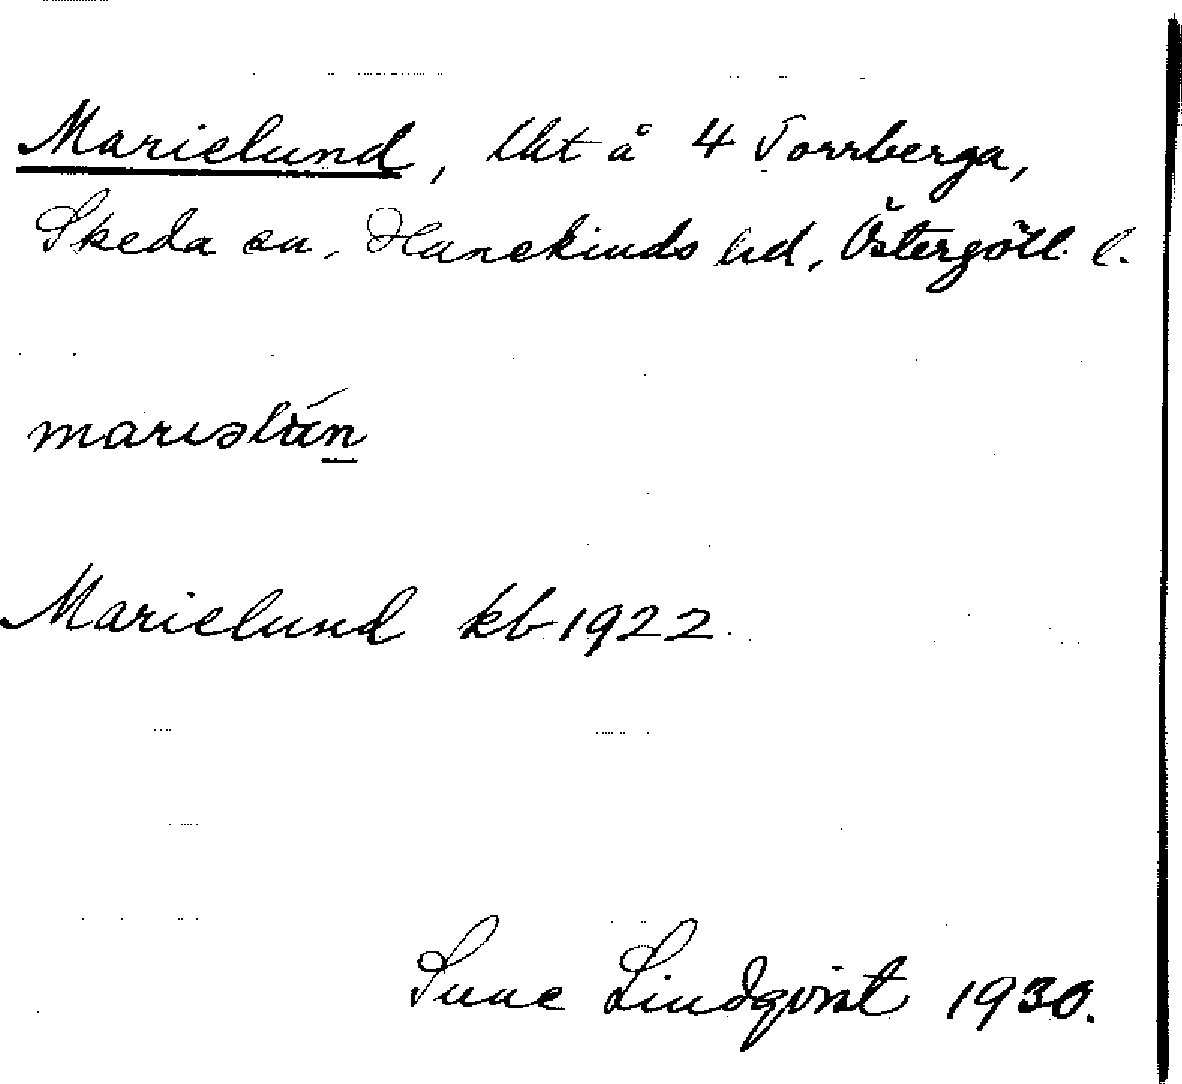 Marielund, lht å 4 Torrberga,
Skeda sn, Hanekinds hd, Östergötl. l.
mariəlún
Marielund kb 1922.
Sune Lindqvist 1930.